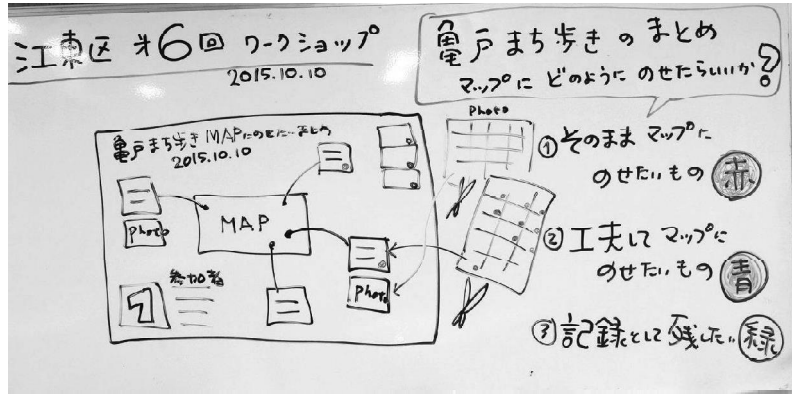 江東区 第6回 ワークショップ
2015.10.10
亀戸まち歩きのまとめ
マップにどのようにのせたらいいか?
亀戸まち歩きMAPにのせたいまとめ
2015.10.10
MAP
photo
参加者
1
photo
photo
①そのままマップに
のせたいもの 赤
②工夫してマップに
のせたいもの 青
③記録として残したい 緑